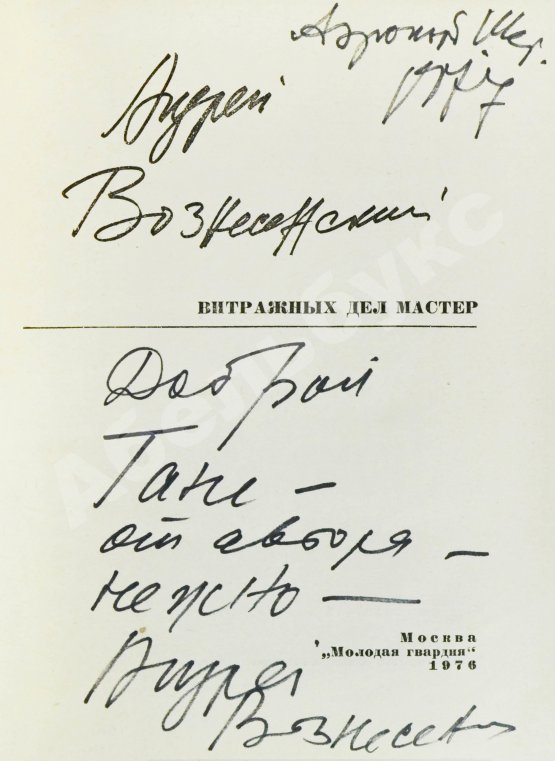 Андрей
Вознесенский
ВИТРАЖНЫХ ДЕЛ МАСТЕР
Доброй
Тане –
от автора –
нежно —
Андрей
Вознесенский
Москва
„Молодая гвардия“
1976
Абельбукс